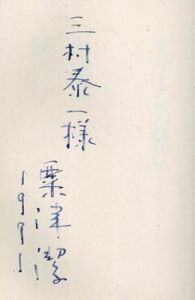 三村泰一様
粟津
1991